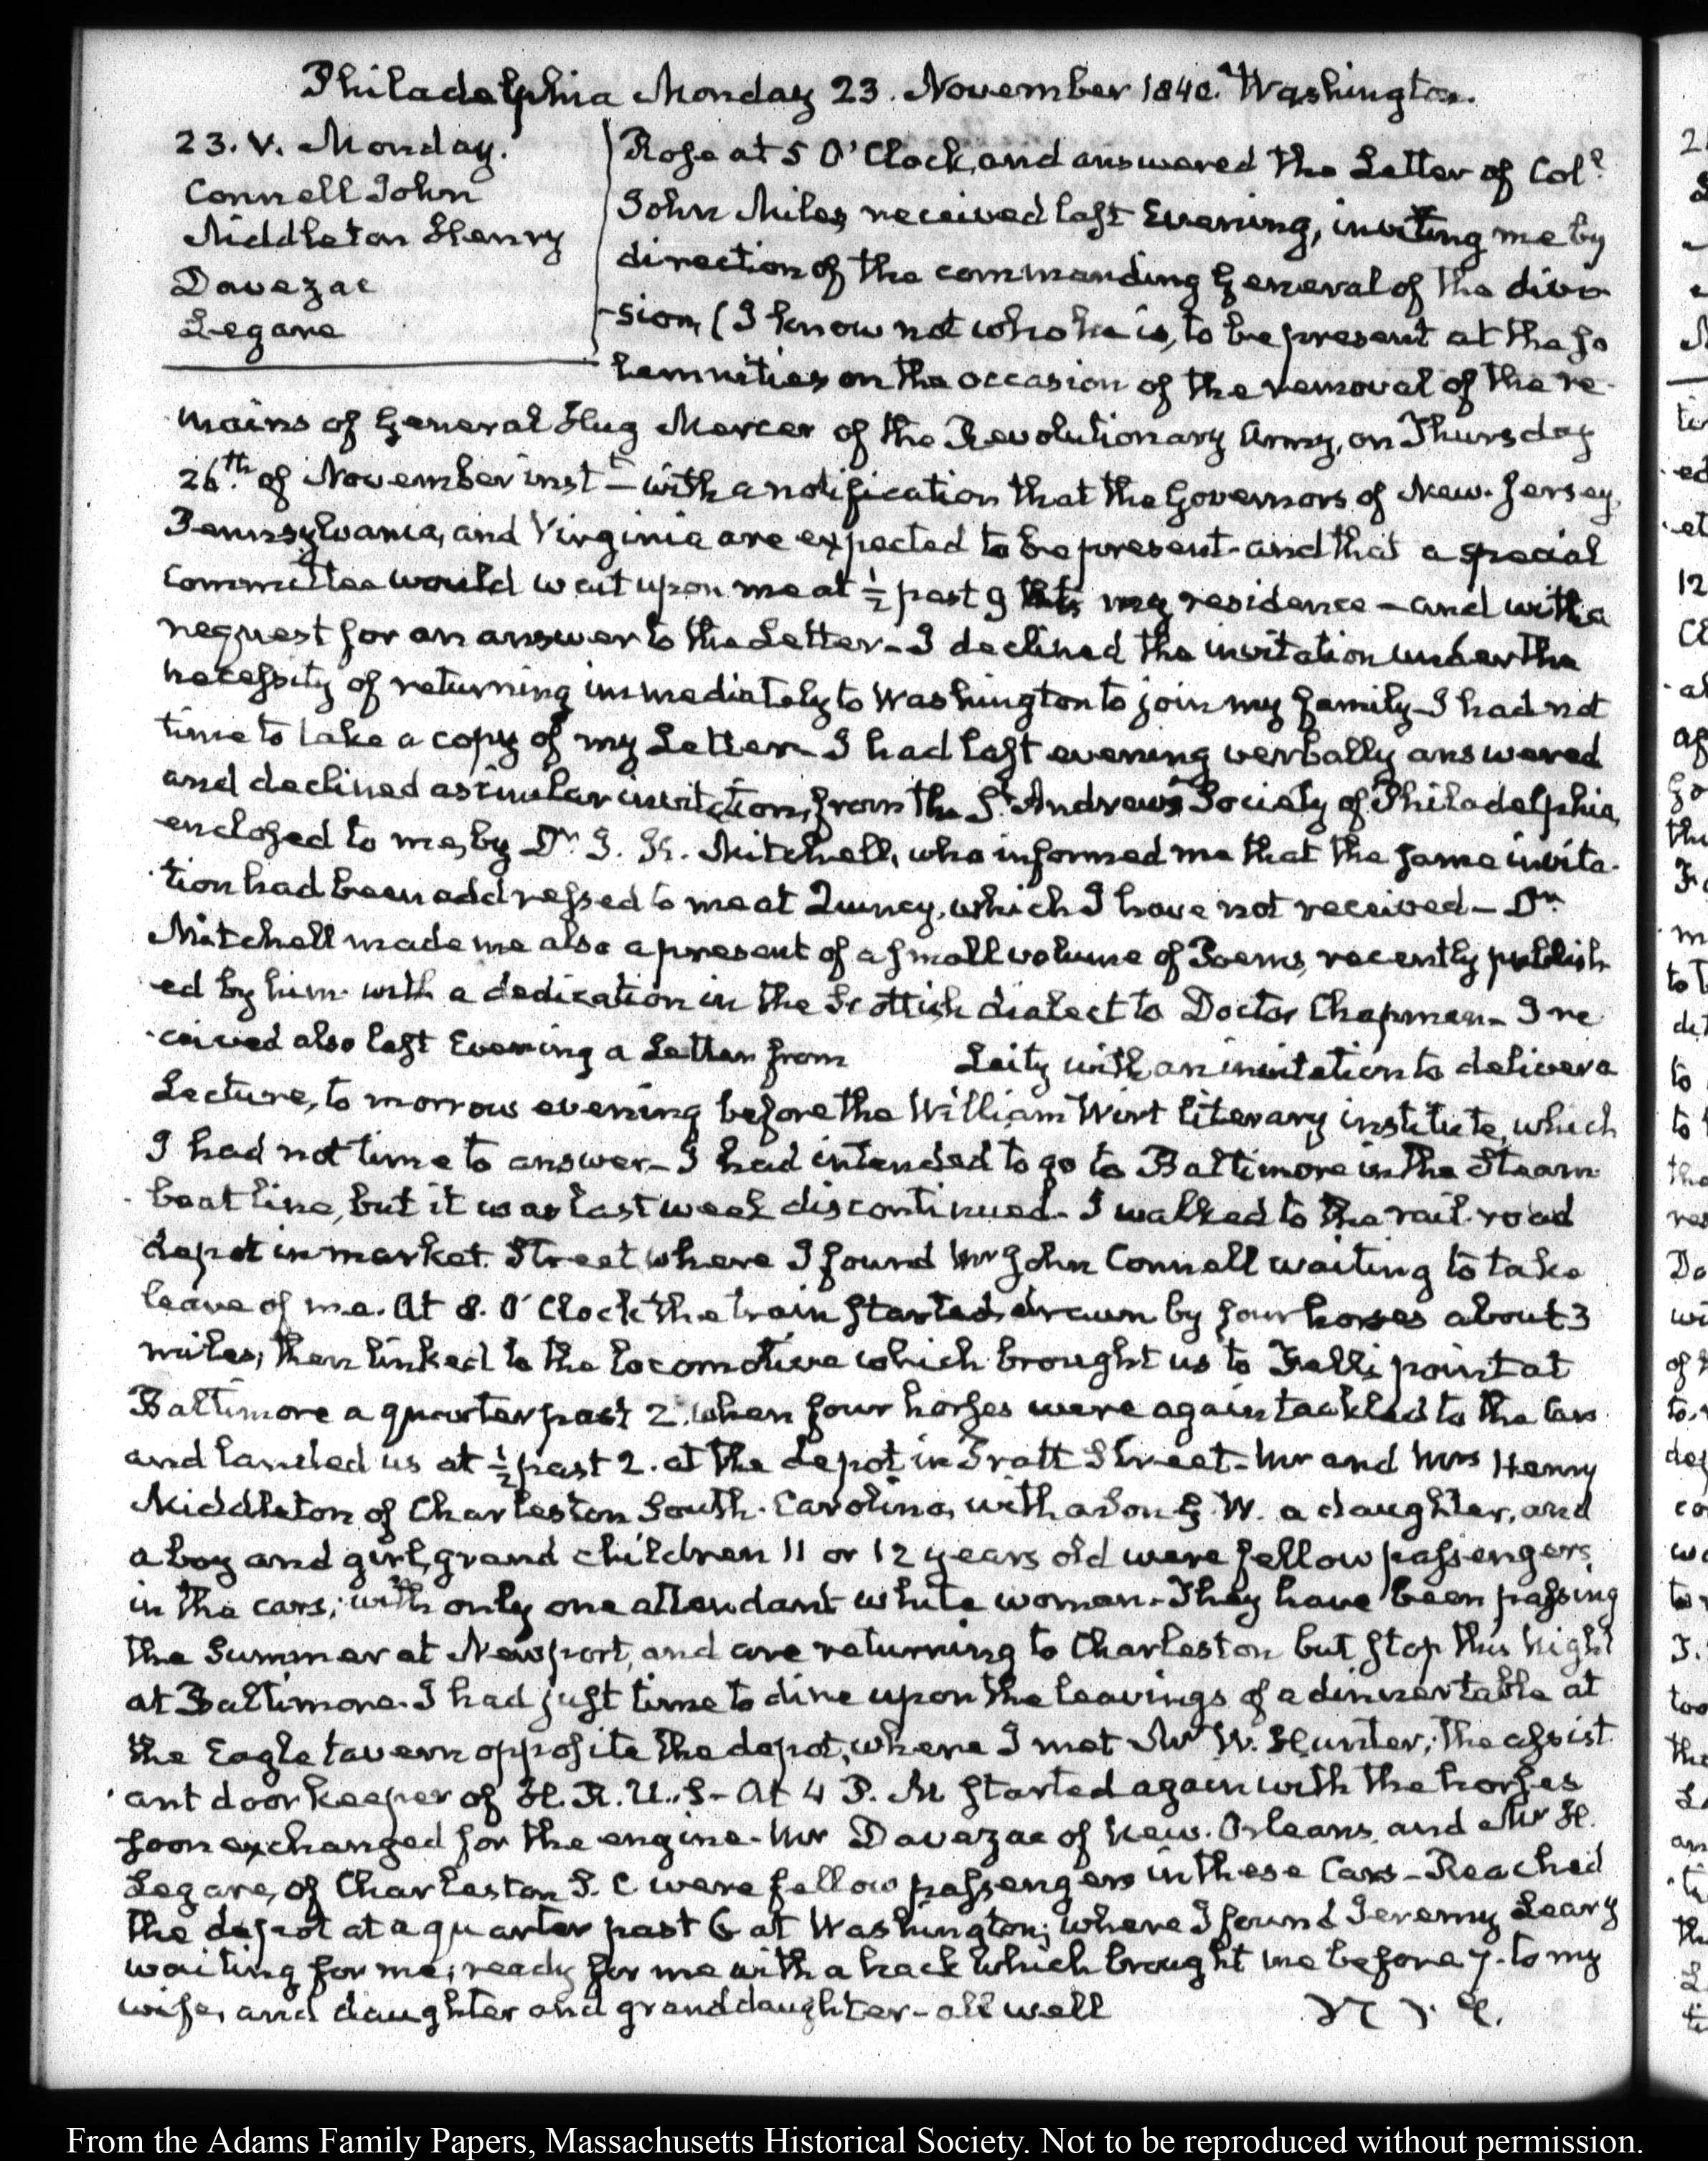 Philadelphia Monday 23. November 1840. Washington.
23. V. Monday.
Connell John
Middleton Henry
Davezac
Legare
Rose at 5 O'Clock, and answered the Letter of Col.
John Miles received last Evening, inviting me by
direction of the commanding General of the divi-
-sion, (I know not who he is, to be present at the so
lemnities on the occasion of the removal of the re-
mains of General Hug Mercer of the Revolutionary Army, on Thursday
26th. of November inst.t—with a notification that the Governors of New-Jersey,
Pennsylvania, and Virginia are expected to be present—and that a special
Committee would wait upon me at ½ past 9 my residence—and with a
request for an answer to the Letter—I declined the invitation under the
necessity of returning immediately to Washington to join my family—I had not
time to take a copy of my Letter—I had last evening verbally answered
and declined a similar invitation, from the St. Andrew's Society of Philadelphia,
enclosed to me, by Dr. J. K. Mitchell, who informed me that the same invita-
tion had been addressed to me at Quincy, which I have not received—Dr.
Mitchell made me also a present of a small volume of Poems, recently publish
ed by him with a dedication in the Scottish dialect to Doctor Chapman—I re
-ceived also last Evening a Letter from Laity with an invitation to deliver a
Lecture, to morrow evening before the William Wirt literary institute, which
I had not time to answer—I had intended to go to Baltimore in the Steam
boat line, but it was last week discontinued—I walked to the rail-road
depot in market Street where I found Mr John Connell waiting to take
leave of me. At 8. O'Clock the train started drawn by four horses about 3
miles, then linked to the locomotive which brought us to Fell's point at
Baltimore a quarter past 2. when four horses were again tackled to the cars
and landed us at ½ past 2. at the depot in Pratt Street—Mr and Mrs Henry
Middleton of Charleston South-Carolina, with a son W. a daughter, and
a boy and girl, grand children 11 or 12 years old were fellow passengers
in the cars; with only one attendant white woman—They have been passing
the Summer at Newport, and are returning to Charleston but stop this Night
at Baltimore. I had just time to dine upon the leavings of a dinner table at
the Eagle tavern opposite the depot, where I met Mr W. Hunter, the assist
ant doorkeeper of H. R. U. S—At 4 P. M started again with the horses
soon exchanged for the engine—Mr Davezac of New-Orleans, and Mr H.
Legare, of Charleston S. C were fellow passengers in these Cars—Reached
the depot at a quarter past 6 at Washington; where I found Jeremy Leary
waiting for me; ready for me with a hack which brought me before 7. to my
wife, and daughter and granddaughter—all well
From the Adams Family Papers, Massachusetts Historical Society. Not to be reproduced without permission.